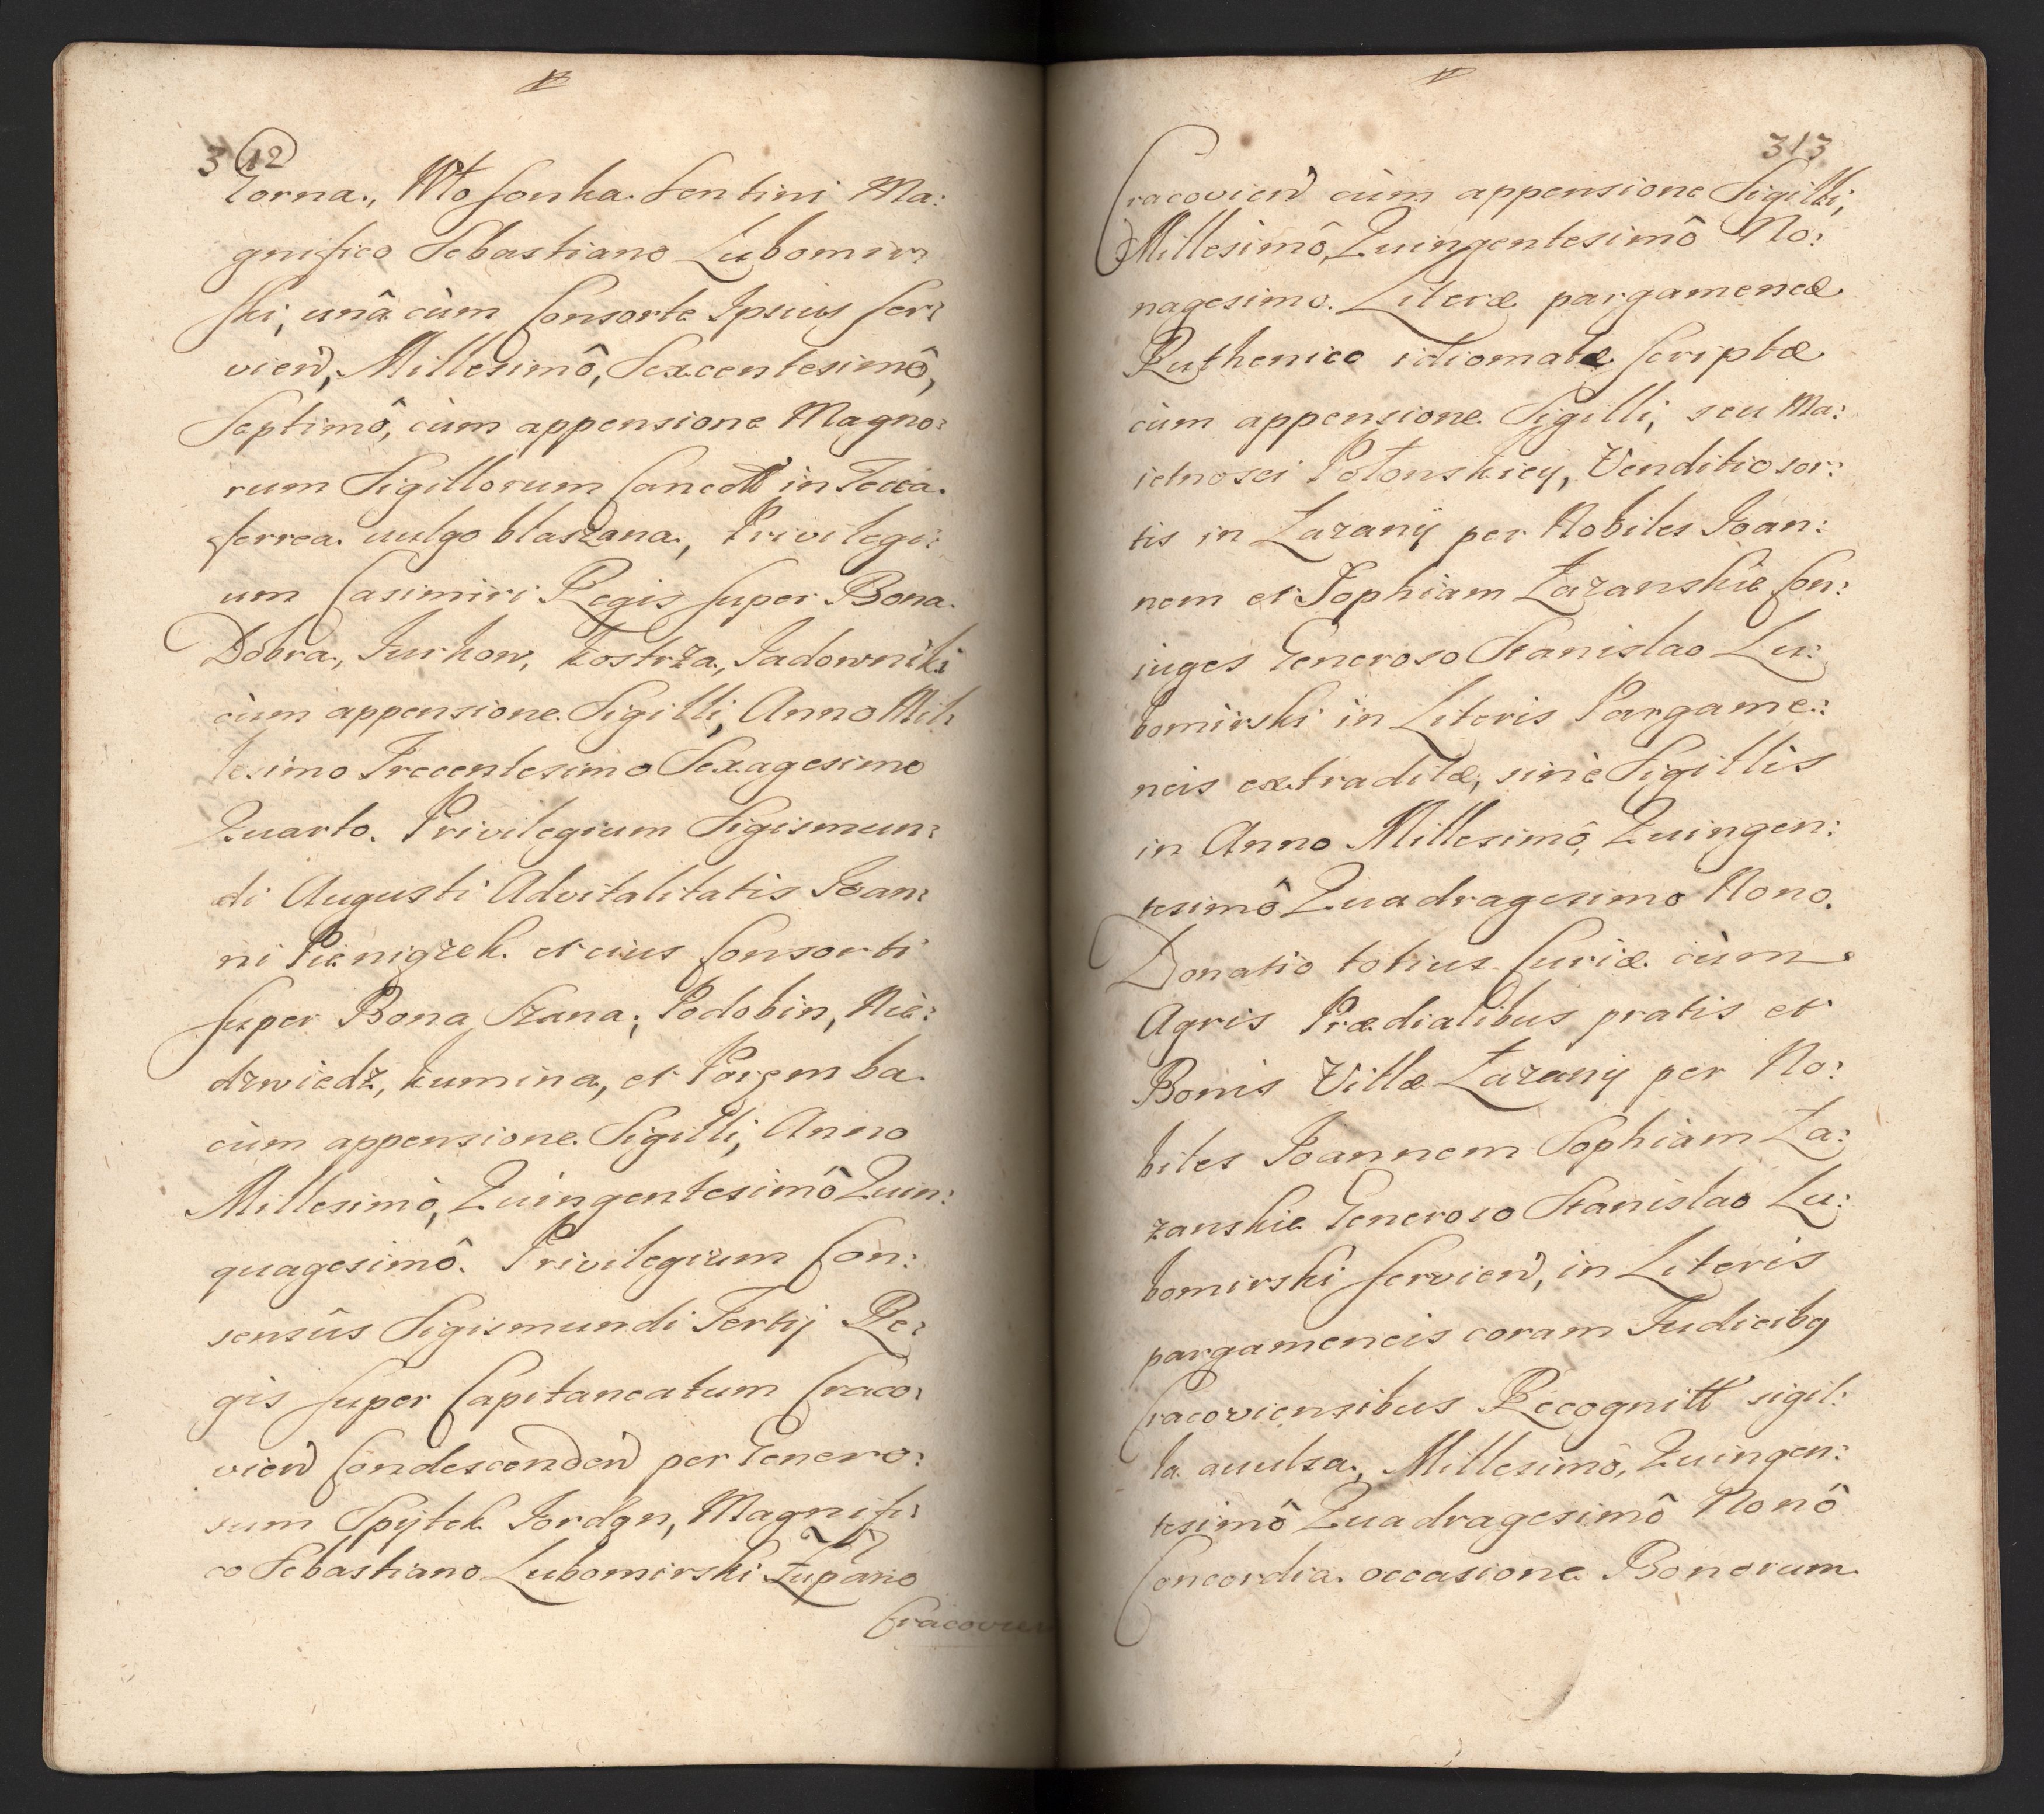 312
Gorna, Wtosonka. Sentini Ma:
gnifico Sebastiano Lubomir:
ski, unâ cùm Consorte Ipsius ser:
vien̄, Millesimô, Sexcentesimô,
Septimô, cùm appensione Magno:
rum Sigillorum Cancell in Tecca
ferrea vulgo blaszana, Privilegi:
um Casimiri Regis super Bona
Dobra, Jurkow, Kostrza, Jadowniki
cùm appensione Sigilli, Anno Mil:
lesimo Trecentesimo Sexagesimo
Quarto. Privilegium Sigismun:
di Augusti Advitalitatis Joan:
ni Pieniązek et eius Consorti
super Bona Szana, Podobin, Nie:
dzwiedz, Kumina, et Poręmba
cùm appensione Sigilli, Anno
Millesimô, Quingentesimô Quin:
quagesimô. Privilegium Con:
sensûs Sigismundi Tertij Re:
gis super Capitaneatum Craco:
vien̄ Condescenden̄ per Genero:
sum Spÿtek Jordan, Magnifi:
co Sebastiano Lubomirski Zupano
Cracovien
313
Cracovien̄ cùm appensione Sigilli,
Millesimô, Quingentesimô No:
nagesimo. Literæ pargameneæ
Ruthenico idiomate scriptæ
cùm appensione Sigilli, seu Ma:
ietnosci Połonskiey, Venditio sor:
tis in Łazanÿ per Nobiles Joan:
nem et Sophiam Łazanskie Con:
iuges Generoso Stanislao Lu:
bomirski in Literis Pargame:
neis extraditæ, sinè Sigillis
in Anno Millesimô, Quingen:
tesimô Quadragesimo Nono.
Donatio totius Curiæ cùm
Agris Prædialibus pratis et
Bonis Villæ Łazanÿ per No:
biles Joannem Sophiam Ła:
zanskie Generoso Stanislao Lu:
bomirski servien̄, in Literis
pargameneis coram Judicibq
Cracoviensibus Recognitt sigil:
la avulsa, Millesimô, Quingen:
tesimô Quadragesimô Nonô
Concordia occasione Bonorum